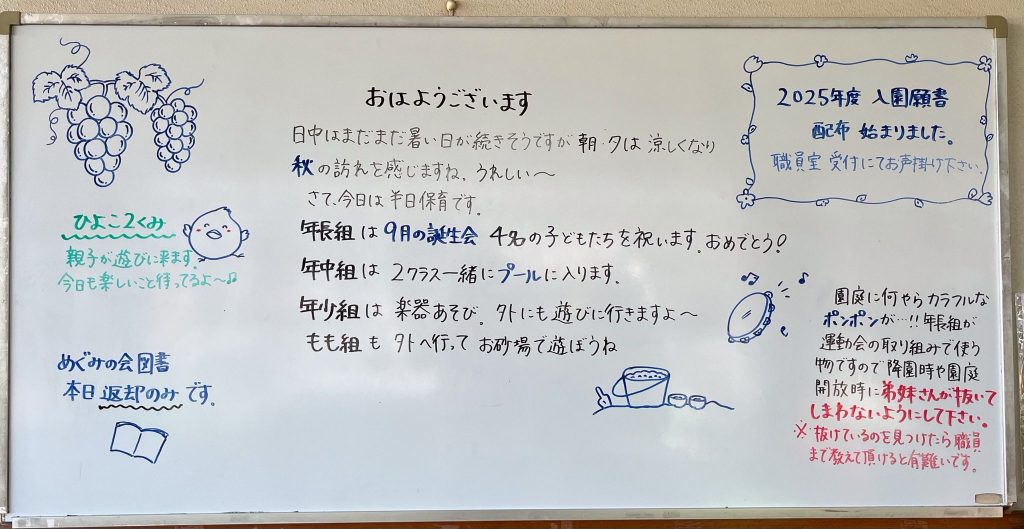 おはようございます
日中はまだまだ暑い日が続きそうですが朝・夕は涼しくなり
秋の訪れを感じますね。うれしい〜
さて、今日は半日保育です。
年長組は9月の誕生会 4名の子どもたちを祝います。おめでとう!
年中組は2クラス一緒にプールに入ります。
年少組は楽器あそび。外にも遊びに行きますよ〜
もも組も外へ行ってお砂場で遊ぼうね
ひよこ2くみ
親子が遊びに来ます。
今日も楽しいこと待ってるよ〜♫
めぐみの会図書
本日返却のみです。
2025年度 入園願書
配布 始まりました。
職員室 受付にてお声掛け下さい。
園庭に何やらカラフルな
ポンポンが…!!年長組が
運動会の取り組みで使う
物ですので降園時や園庭
開放時に弟妹さんが抜いて
しまわないようにして下さい。
※抜けているのを見つけたら職員
まで教えて頂けると有難いです。